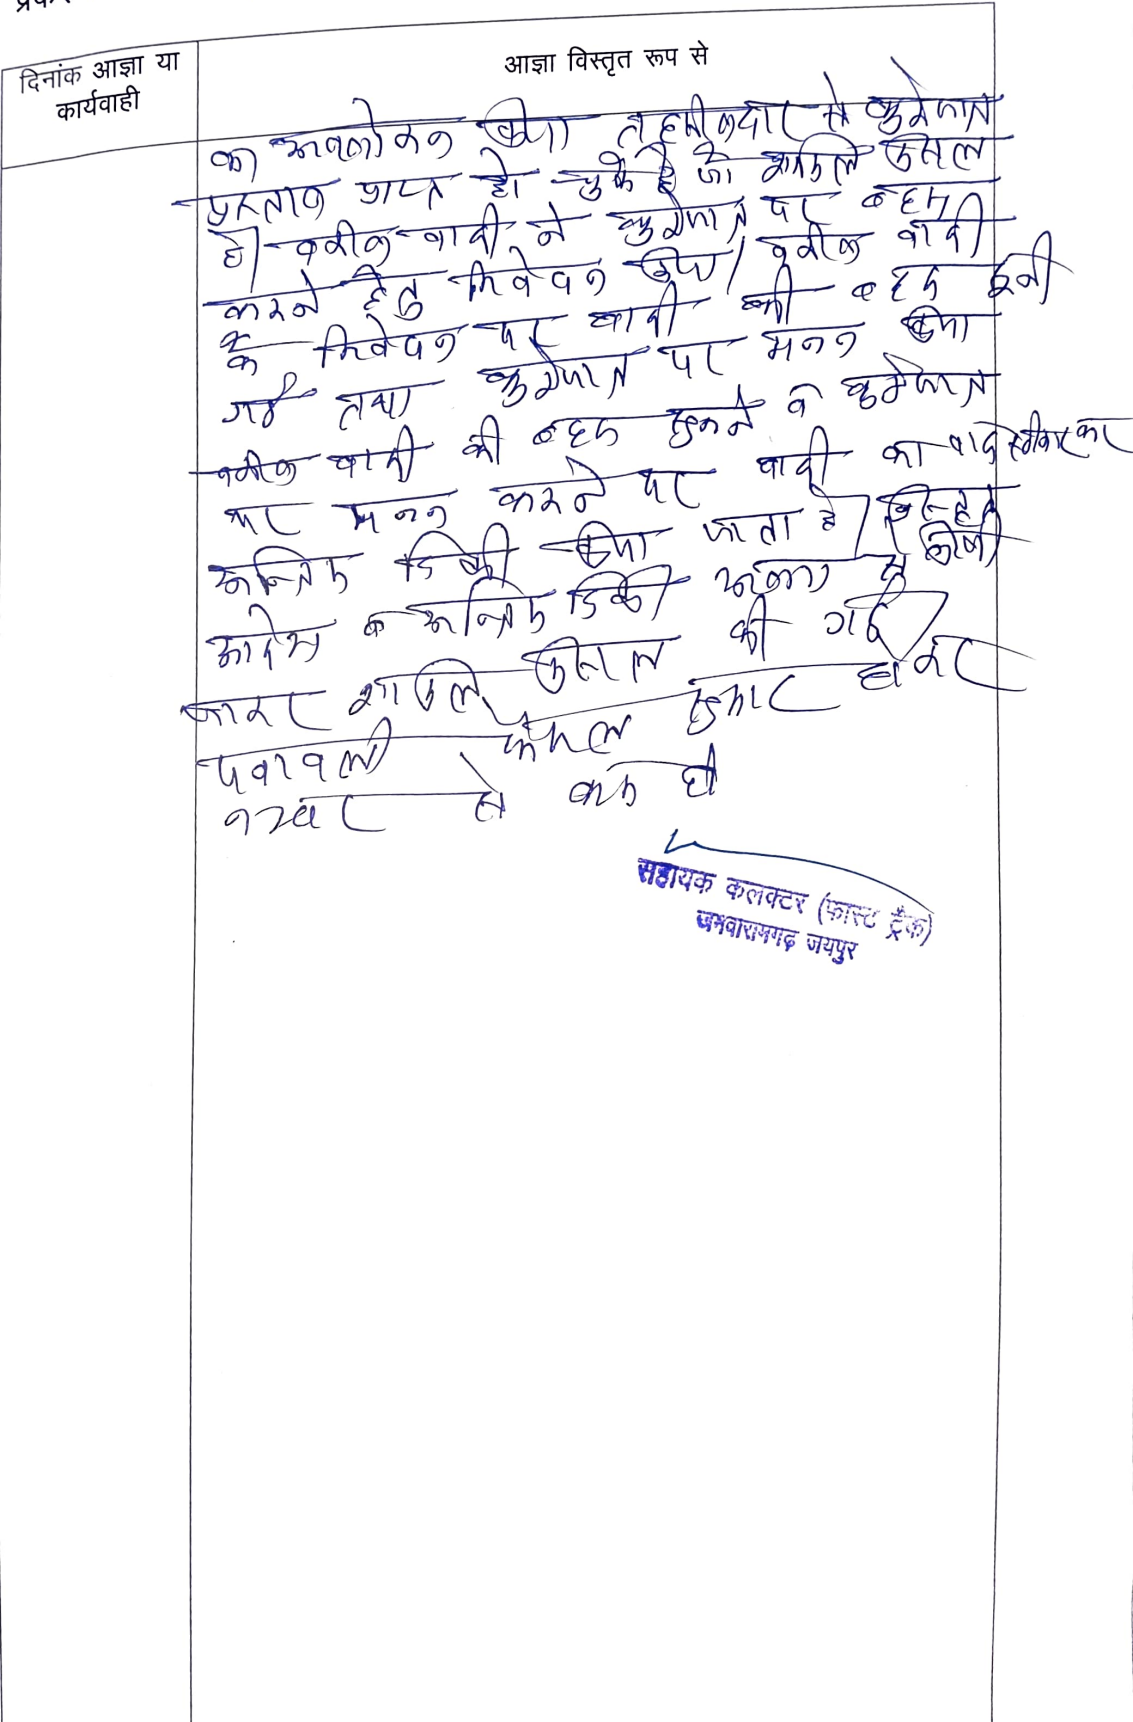 प्रकर
दिनांक आज्ञा या
कार्यवाही
आज्ञा विस्तृत रूप से
का अवलोकन किया तहसीलदार से कुर्रेजात
प्रस्ताव प्राप्त हो चुके है जो शामिल मिसल
है। वकील वादी ने कुर्रेजात पर बहस
करने हेतु निवेदन किया। वकील वादी
के निवेदन पर वादी की बहस सुनी
गई तथा कुर्रेजात पर मनन किया
वकील वादी की बहस सुनने व कुर्रेजात
पर मनन करने पर वादी का वाद स्वीकार कर
अन्तिम डिक्री किया जाता है। विस्तृत
आदेश व अन्तिम डिक्री अलग से लिखी
जाकर शामिल मिसल की गई।
पत्रावली फैसल शुमार होकर
नम्बर से कम हो
सहायक कलक्टर (फास्ट ट्रैक)
जमवारामगढ़ जयपुर